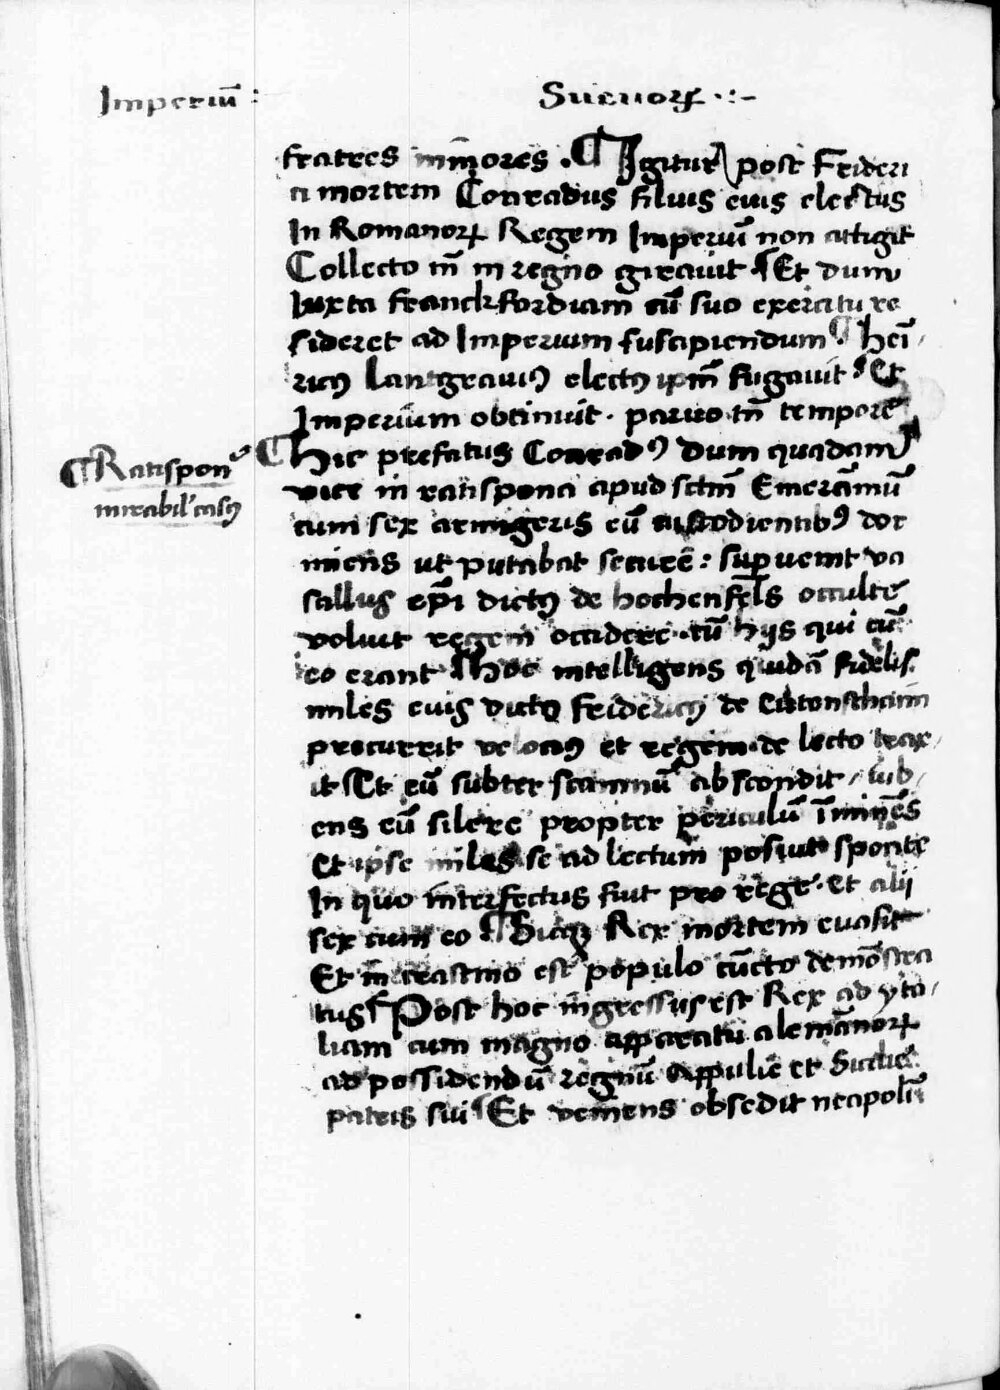 Imperiū : Sueuoꝝ
fratres mīores . ¶ Igitur post Frideri
ci mortem Conradus filius eius electus
In Romanoꝝ Regem Imperiū non attigit
Collecto tn̄ in regno girauit ¶ Et dum
Iuxta franckfordiam cū suo exercitu re
sideret ad Imperium suscipiendum ¶ hei
ricꝰ Lantgrauiꝰ electꝰ ip̄m fugauit ¶ Et
Imperium obtinuit . paruo tn̄ tempore
¶ Hic prefatus Conradꝰ dum quadam
¶ Ratispon̄
mirabil' casꝰ
vice in ratispona apud sctm̄ Emeramū
cum sex armigeris eū custodientibꝰ dor
miens ut putabat secure : supuenit va
sallus ep̄i dictꝰ de hochenfels occulte
voluit regem occidere . cū hijs qui cū
eo erant ¶ Hoc intelligens quidā fidelis
miles eius dictꝰ Fridericꝰ de
precurrit velociꝰ et regem de lecto trax
it ¶ Et eū subter scamnū abscondit / iub
ens eū silere propter periculū īminēs
Et ipse miles se ad lectum posuit sponte
In quo interfectus fuit pro rege . et alij
sex cum eo ¶ Sicqꝫ Rex mortem euasit
Et in crastino est populo cūcto demōstra
tus ¶ Post hoc ingressus est Rex ad yta
liam cum magno apparatu alemānoꝝ
ad possidendū regnū Appulie et Sicilie
patris sui ¶ Et veniens obsedit neapolim